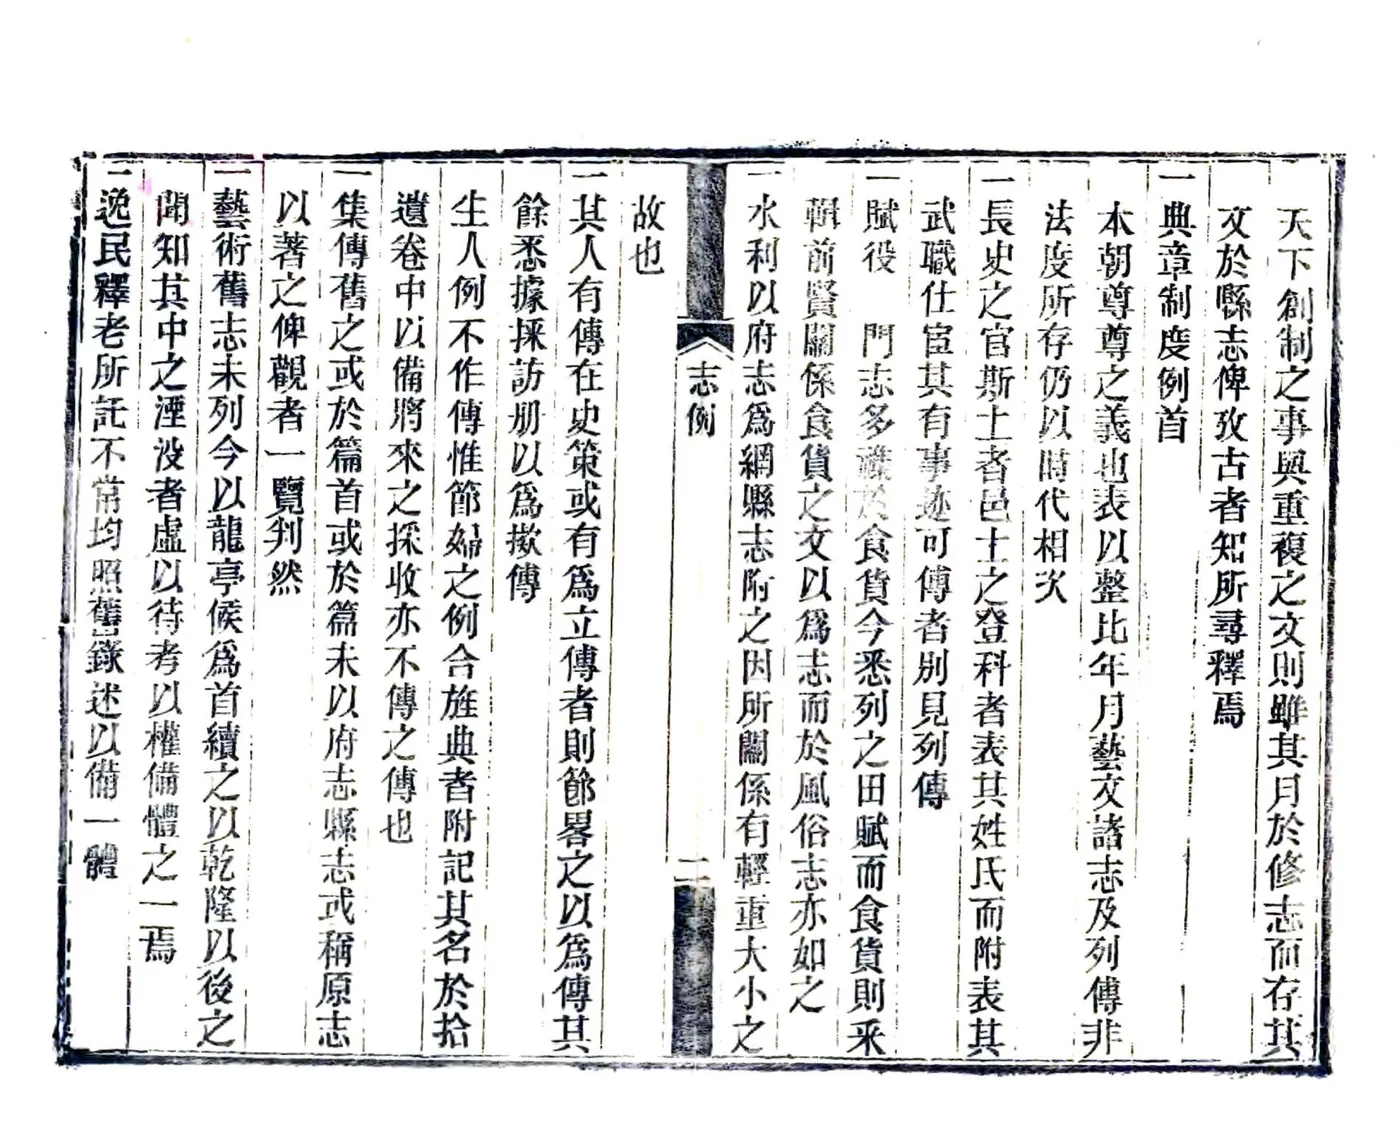 天下創制之事與重複之文則雖其月於修志而存其
文於縣志俾攷古者知所尋釋焉
一典章制度例首
本朝尊尊之義也表以整比年月藝文諸志及列傳非
法度所存仍以時代相次
一長史之官斯土者邑士之登科者表其姓氏而附表其
武職仕宦其有事迹可傳者別見列傳
一賦役 門志多襍於食貨今悉列之田賦而食貨則采
輯前賢關係食貨之文以爲志而於風俗志亦如之
一水利以府志爲綱縣志附之因所關係有輕重大小之
志例
二
故也
一其人有傳在史策或有爲立傳者則節畧之以爲傳其
餘悉據採訪册以爲撳傳
生人例不作傳惟節婦之例合旌典者附記其名於拾
遺卷中以備將來之採收亦不傳之傳也
一集傳舊之或於篇首或於篇末以府志縣志或稱原志
以著之俾觀者一覽判然
一藝術舊志未列今以龍亭侯爲首續之以乾隆以後之
聞知其中之湮没者虛以待考以權備體之一焉
一逸民釋老所託不常均照舊錄述以備一體